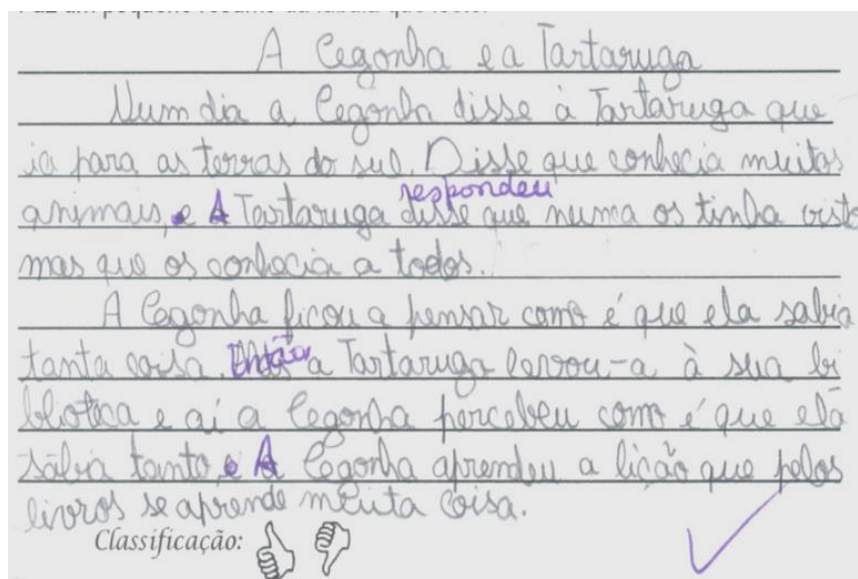 Faz um pequeno resumo da fábula que leste.
A Cegonha e a Tartaruga
Num dia a Cegonha disse à Tartaruga que
ia para as terras do sul. Disse que conhecia muitos
animais, e A Tartaruga disse respondeu que nunca os tinha visto
mas que os conhecia a todos.
A Cegonha ficou a pensar como é que ela sabia
tanta coisa. Então a Tartaruga levou-a à sua bi
blioteca e aí a Cegonha percebeu como é que ela
sabia tanto, e A Cegonha aprendeu a lição que pelos
livros se aprende muita coisa.
Classificação: